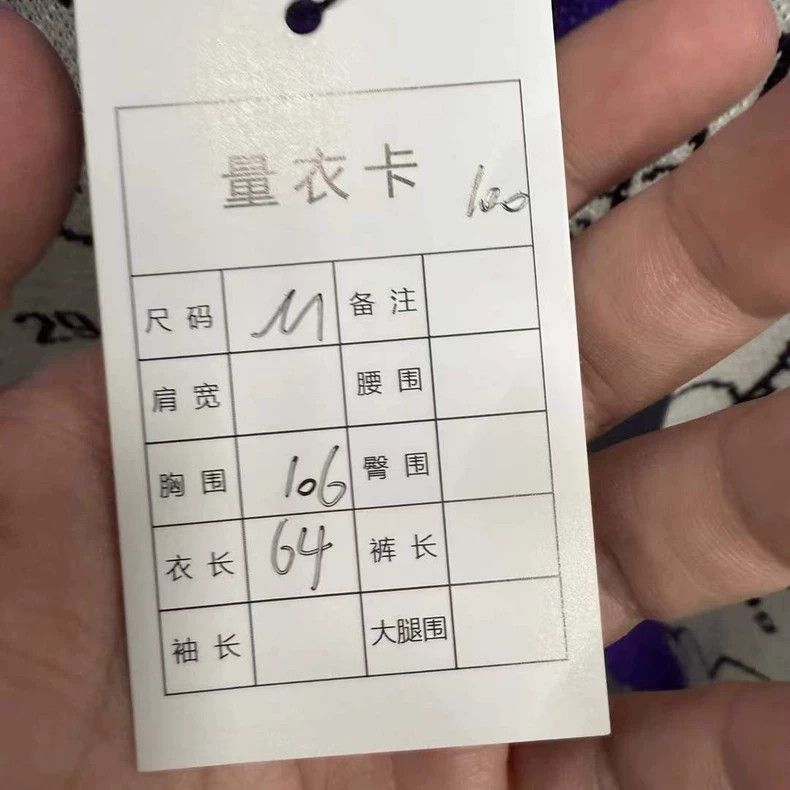 量衣卡 100
尺码 M 备注
肩宽 腰围
胸围 106 臀围
衣长 64 裤长
袖长 大腿围
29